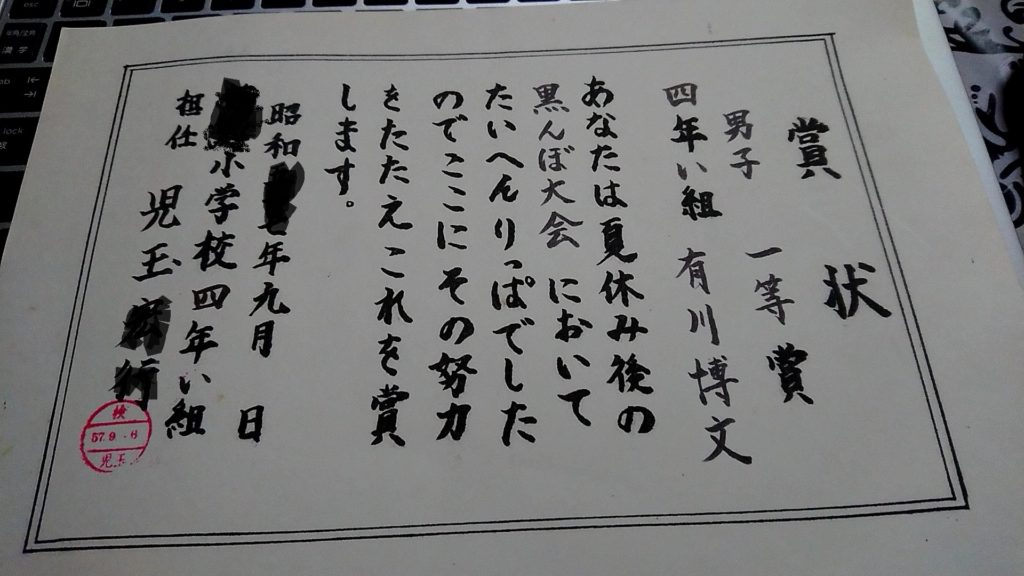 賞 状
男子 一等賞
四年い組 有川博文
あなたは夏休み後の
黒んぼ大会 において
たいへんりっぱでした
のでここにその努力
をたたえこれを賞
します。
昭和 年九月 日
小学校四年い組
担任 児玉 行
検
57.9.6
児玉